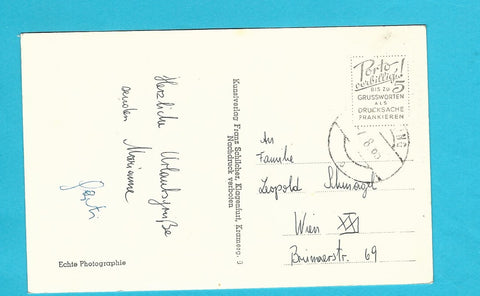 Herzliche Urlaubsgrüße
senden Marianne
Echte Photographie
Kunstverlag Franz Schilcher, Klagenfurt, Kramerg. 9
Nachdruck verboten
Porto-
verbilligt!
BIS ZU 5
GRUSSWORTEN
ALS
DRUCKSACHE
FRANKIEREN
An
Familie
Leopold Schnagl
Wien XXI
Brünnerstr. 69